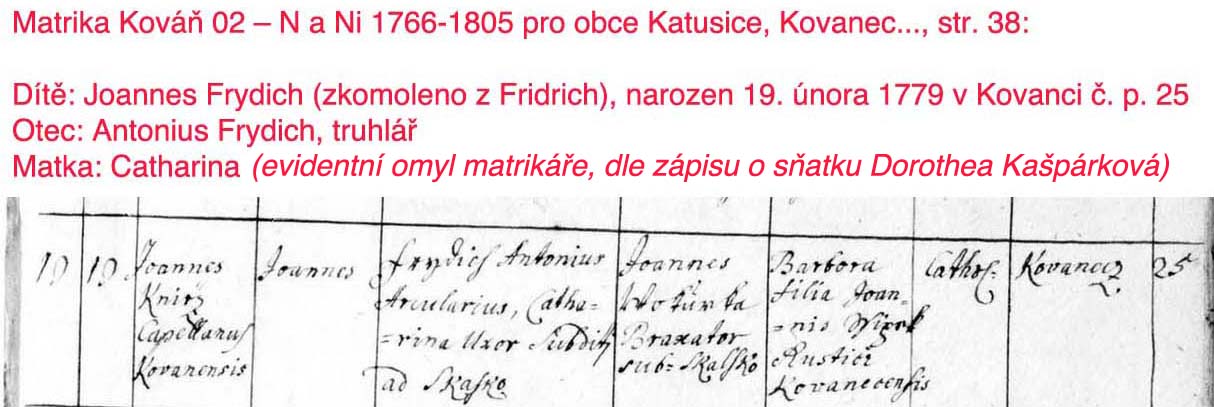 Matrika Kováň 02 – N a Ni 1766-1805 pro obce Katusice, Kovanec..., str. 38:
Dítě: Joannes Frydich (zkomoleno z Fridrich), narozen 19. února 1779 v Kovanci č. p. 25
Otec: Antonius Frydich, truhlář
Matka: Catharina (evidentní omyl matrikáře, dle zápisu o sňatku Dorothea Kašpárková)
19
19.
Joannes
Knirz
Capellanus
Kovanensis
Joannes
Frydich Antonius
Arcularius, Catha=
=rina Uxor Subditi
ad Skalsko
Joannes
Woturka
Braxator
sub= Skalsko
Barbora
filia Joan=
=nis
Rustici
Kovanecensis
Cathol:
Kovanecz
25